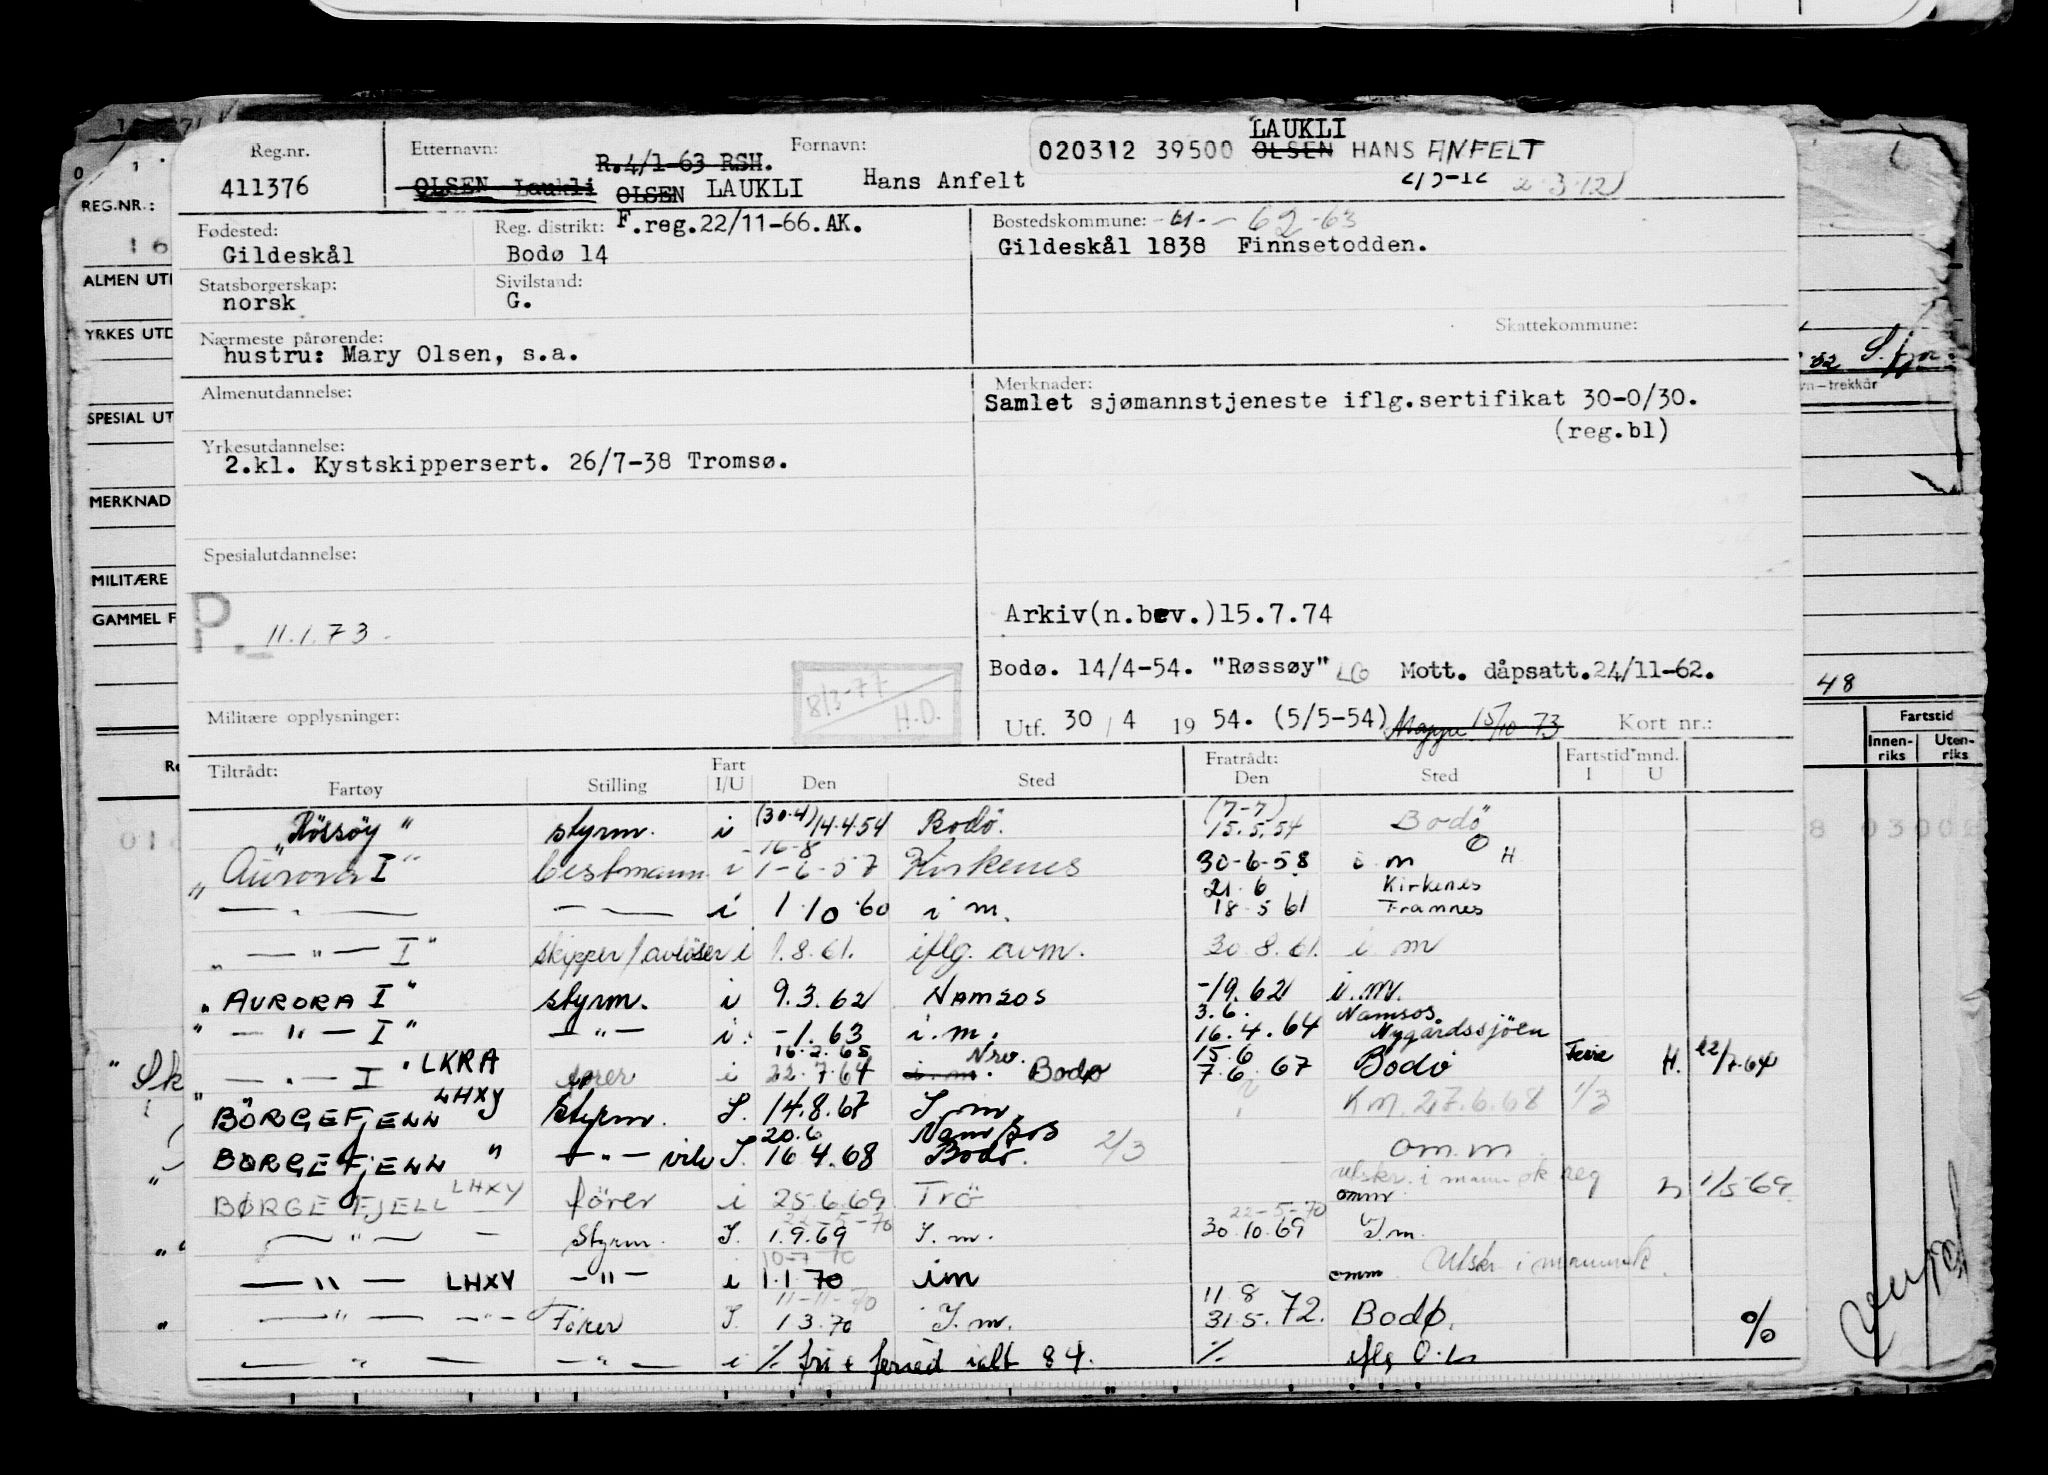 Reg.nr. Etternavn: R.4/1-63 RSH. Fornavn: 020312 39500 LAUKLI OLSEN HANS ANFELT
411376 OLSEN Laukli OLSEN LAUKLI Hans Anfelt 2/3-12 2-3-12
Fødested: Reg. distrikt: F.reg.22/11-66.AK. Bostedskommune: -61- -62-63
Gildeskål Bodø 14 Gildeskål 1838 Finnsetodden.
Statsborgerskap: Sivilstand:
norsk G.
Nærmeste pårørende: Skattekommune:
hustru: Mary Olsen, s.a.
Almenutdannelse: Merknader:
Samlet sjømannstjeneste iflg.sertifikat 30-0/30.
(reg.bl)
Yrkesutdannelse:
2.kl. Kystskippersert. 26/7-38 Tromsø.
Spesialutdannelse:
P. 11.1.73. Arkiv(n.bev.)15.7.74
Bodø. 14/4-54. "Røssøy" LG Mott. dåpsatt.24/11-62.
8/3-77 H.D.
Militære opplysninger: Utf. 30/4 1954. (5/5-54) Mappe 15/10 73 Kort nr.:
Tiltrådt: Fart Fratrådt: Fartstid mnd.
Fartøy Stilling I/U Den Sted Den Sted I U
"Røssøy" styrm. i (30.4) 14.4.54 Bodö. (7-7) 15.5.54 Bodö
"Aurora I" bestmann i 16-8 1-6-57 Kirkenes 30-6-58 i m H
— " — — i 1.10.60 i m. 21.6 18.5 61 Kirkenes Framnes
" — " — I" skipper/avløser i 1.8.61. iflg. avm. 30.8.61. i m
"AURORA I" styrm. i 9.3.62 NAMSOS -19.62 i.m.
" — " — I" — " — i. -1.63 i.m. 3.6. 16.4.64 Namsos Nygårdssjöen
" — " — I" LKRA fører i 16.2.65 22.7.64 i.m. Bodø 15.6 7.6.67 Bodö Ferie H. 22/7.64
BÖRGEFJELL LHXY Styrm. I. 14.8.67 I.m. Km. 27.6.68 1/3
BØRGEFJELL " — " — vik I. 20.6 16.4.68 Namsos Bodö. 2/3 om.m
BØRGEFJELL LHXY förer i 25.6.69 Trö omm utskr. i reg 1/5-69
— " — Styrm. I. 22-5-70 1.9.69 I.m. 22-5-70 30.10.69 I.m.
— " — LHXY — " — i 10-7-70 1.1.70 im omm Utskr i
— " — Förer I. 11-11-70 1.3.70 I.m. 11.8 31.5.72. Bodø. %
— " — — " — i % fri + i alt 84. % iflg
REG.NR.:
16
ALMEN UT
YRKES UTD
SPESIAL UT
MERKNAD
MILITÆRE
GAMMEL F
trekkår
48
Fartstid
Innen-riks Uten-riks